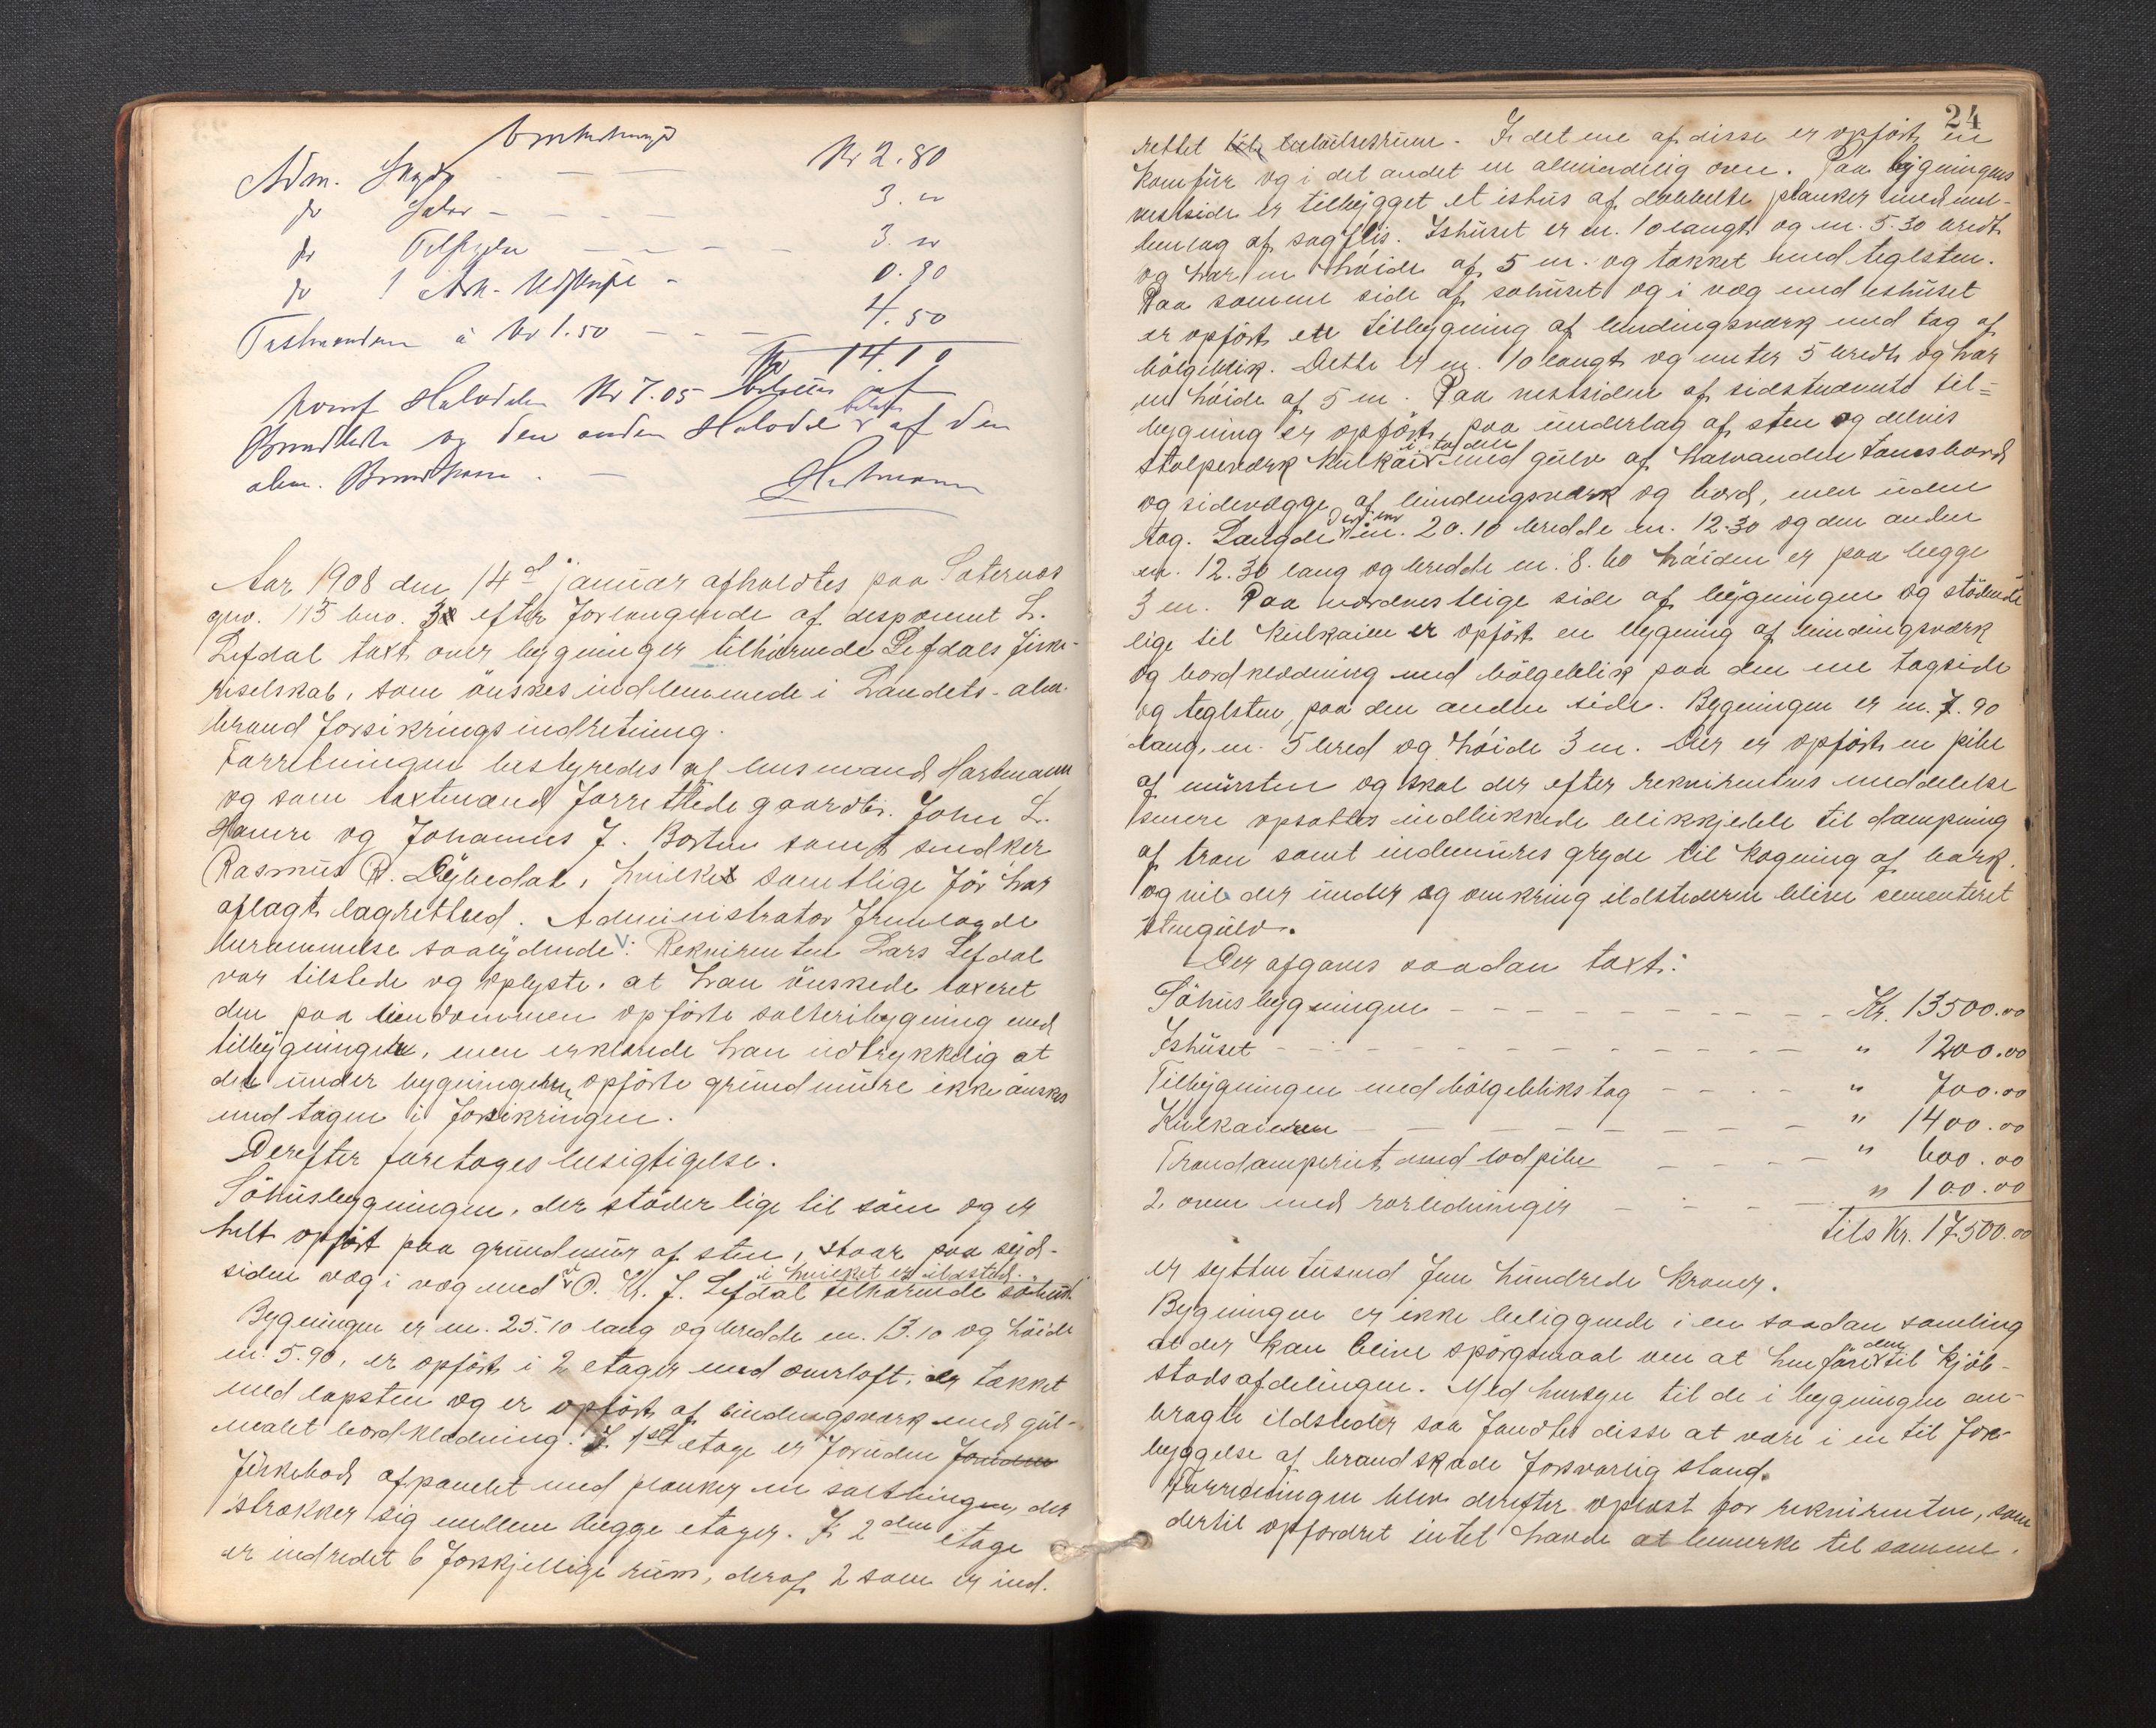 Omkostninger
Adm. Skyds - - - Kr 2.80
do Salær - - - - 3. "
do Tilsyn - - - - 3. "
do 1 Ark. Udskrift - 0.80
Taxtmændene à Kr 1.50 - - - 4.50
Kr 14.10
hvoraf Halvdelen Kr 7.05 betales af
og den anden Halvdel betales af den
alm. Brandkasse. - Hartmann
Aar 1908 den 14de januar afholdtes paa Sæternæs
gno. 115 bno. 3 efter forlangende af disponent L.
Lefdal taxt over bygninger tilhørende Lefdals fiske-
riselskab, som ønskes indlemmede i Landets alm.
brandforsikringsindretning.
Forretningen bestyredes af lensmand Hartmann
og som taxtmænd forrettede gaardbr. John L.
Hamre og Johannes J. Borten samt snedker
Rasmus R. Dybedal, hvilke samtlige før har
aflagt lagretted. Administrator fremlagde
berammelse saalydende: Rekvirenten Lars Lefdal
var tilstede og oplyste, at han ønskede taxeret
den paa eiendommen opførte salteribygning med
tilbygninger, men erklærede han udtrykkelig at
den under bygningen opførte grundmure ikke ønskes
medtagen i forsikringen.
Derefter foretages besigtigelse.
Söhusbygningen, der støder lige til søen og er
helt opført paa grundmur af sten, staar paa syd-
i hvilket er ildsted.
siden væg i væg med et O. K. J. Lefdal tilhørende søhus.
Bygningen er m. 25.10 lang og bredde m. 13.10 og høide
m. 5.90, er opført i 2 etager med overloft, er tækket
med lapsten og er opført af bindingsværk med gul-
malet bordklædning. I 1ste etage er foruden foruden
fiskebod afpanelet med planker en saltbinge, der
strækker sig mellem begge etager. I 2den etage
er indredet 6 forskjellige rum, deraf 2 som er ind-
24
rettet til beboelsesrum. I det ene af disse er opført en
komfur og i det andet en almindelig ovn. Paa bygningens
vestside er tilbygget et ishus af dobbelte planker med mel-
lemlag af sagflis. Ishuset er m. 10 langt og m. 5.30 bredt
og har en høide af 5 m. og tækket med teglsten.
Paa samme side af søhuset og i væg med ishuset
er opført en tilbygning af bindingsværk med tag af
bølgeblik. Dette er m. 10 langt og meter 5 bredt og har
en høide af 5 m. Paa vestsiden af sidstnævnte til-
bygning er opført, paa underlag af sten og delvis
i to dele
stolpeværk kulkai med gulv af tomsbord
og sidevægge af bindingsværk og bord, men uden
den ene
tag. Længde m. 20.10 bredde m. 12.30 og den anden
m. 12.30 lang og bredde m. 8.60 høiden er paa begge
3 m. Paa nordvestlige side af bygningen og stødende
lige til kulkaien er opført en bygning af bindingsværk
og bordklædning med bølgeblik paa den ene tagside
og teglsten paa den anden side. Bygningen er m. 7.90
lang, m. 5 bred og høide 3 m. Der er opført en pibe
af mursten og skal der efter rekvirentens meddelelse
senere opsættes indlukkede blikkjedele til dampning
af tran samt indemures gryde til kogning af bark,
og vil der under og omkring ildstederne blive cementeret
stengulv.
Der afgaves saadan taxt:
Söhusbygningen - - - - - - - - - Kr. 13500.00
Ishuset - - - - - - - - - - - - " 1200.00
Tilbygningen med bølgebliks tag - - - - " 700.00
Kulkaierne - - - - - - - - " 1400.00
Trandamperiet med lodpibe - - - - " 600.00
2. ovne med rørledninger - - - - " 100.00
tils Kr. 17500.00
er sytten tusend fem hundrede kroner.
Bygningen er ikke beliggende i en saadan samling
dem
at der kan blive spørgsmaal om at henføre til kjøb-
stadsafdelingen. Med hensyn til de i bygningen an-
bragte ildsteder saa fandtes disse at være i en til fore-
byggelse af brandskade forsvarlig stand.
Forretningen blev derefter oplæst for rekvirenten, som
dertil opfordret intet havde at bemerke til samme.